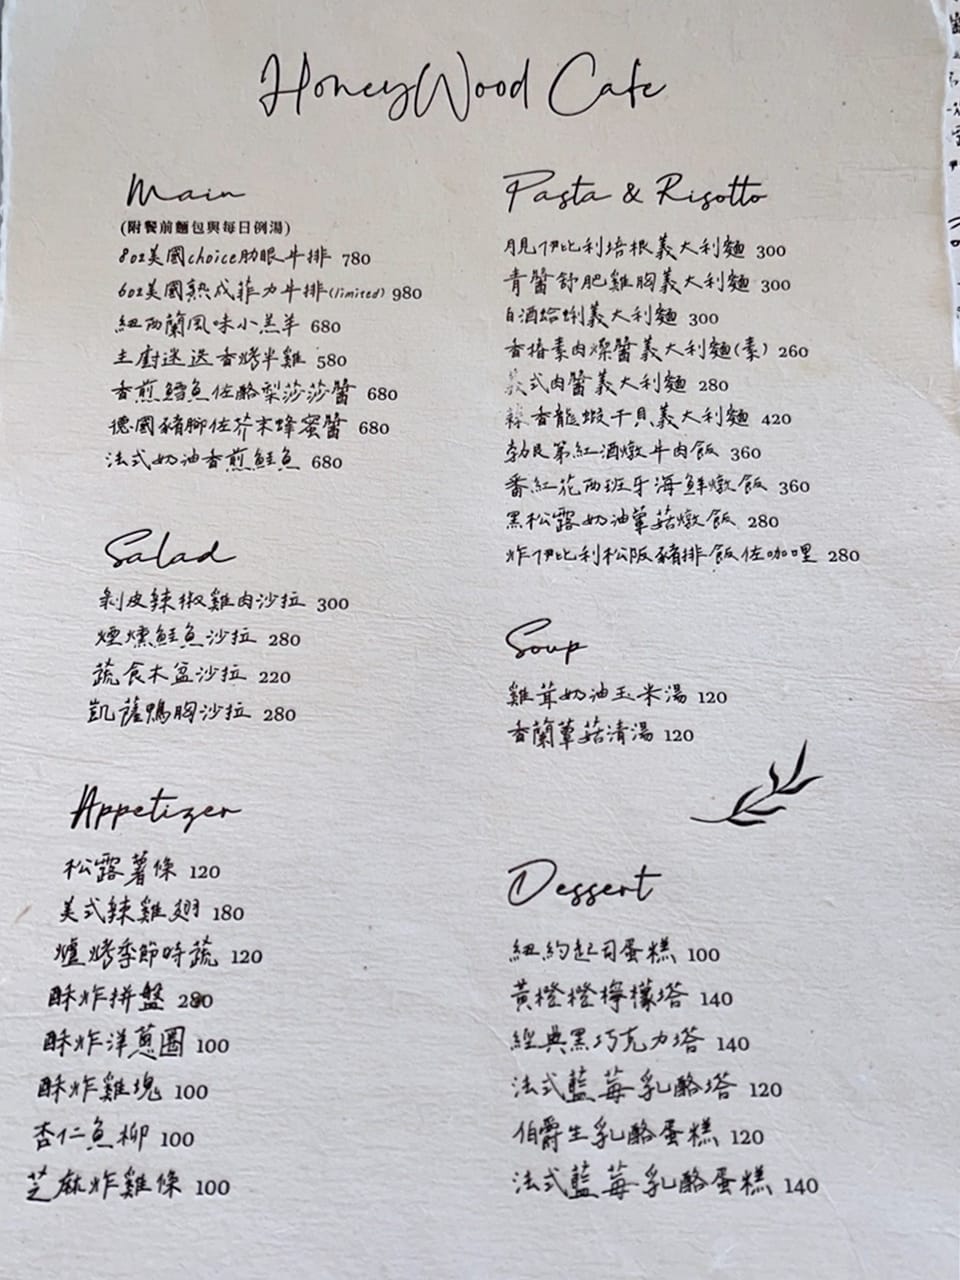 HoneyWood Cafe
Main
(附餐前麵包與每日例湯)
8oz美國choice肋眼牛排 780
6oz美國熟成菲力牛排(limited) 980
紐西蘭風味小羔羊 680
主廚迷迭香烤半雞 580
香煎鱈魚佐酪梨莎莎醬 680
德國豬腳佐芥末蜂蜜醬 680
法式奶油香煎鮭魚 680
Salad
剝皮辣椒雞肉沙拉 300
煙燻鮭魚沙拉 280
蔬食木盆沙拉 220
凱薩鴨胸沙拉 280
Appetizer
松露薯條 120
美式辣雞翅 180
爐烤季節時蔬 120
酥炸拼盤 280
酥炸洋蔥圈 100
酥炸雞塊 100
杏仁魚柳 100
芝麻炸雞條 100
Pasta & Risotto
月見伊比利培根義大利麵 300
青醬舒肥雞胸義大利麵 300
白酒蛤蜊義大利麵 300
香椿素肉燥醬義大利麵(素) 260
義式肉醬義大利麵 280
蒜香龍蝦干貝義大利麵 420
勃艮第紅酒燉牛肉飯 360
番紅花西班牙海鮮燉飯 360
黑松露奶油蕈菇燉飯 280
炸伊比利松阪豬排飯佐咖哩 280
Soup
雞茸奶油玉米湯 120
香蘭蕈菇清湯 120
Dessert
紐約起司蛋糕 100
黃橙橙檸檬塔 140
經典黑巧克力塔 140
法式藍莓乳酪塔 120
伯爵生乳酪蛋糕 120
法式藍莓乳酪蛋糕 140